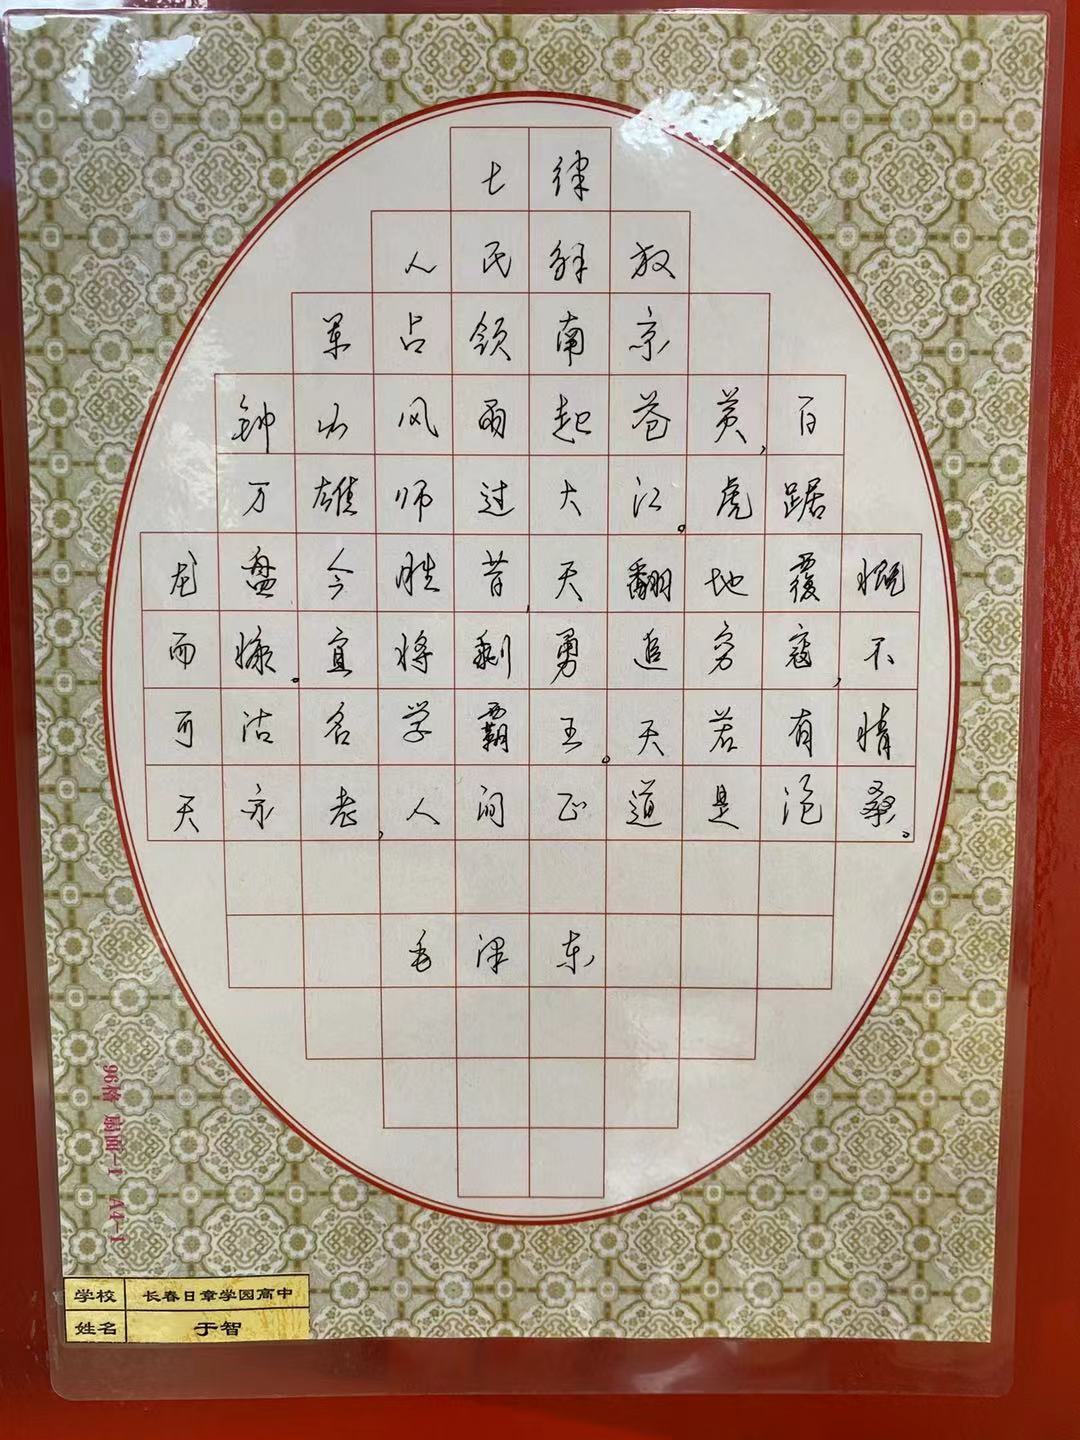 七律
人民解放
军占领南京
钟山风雨起苍黄,百
万雄师过大江。虎踞
龙盘今胜昔,天翻地覆慨
而慷。宜将剩勇追穷寇,不
可沽名学霸王。天若有情
天亦老,人间正道是沧桑。
毛泽东
96格 扇面-1 A4-1
学校 长春日章学园高中
姓名 于智